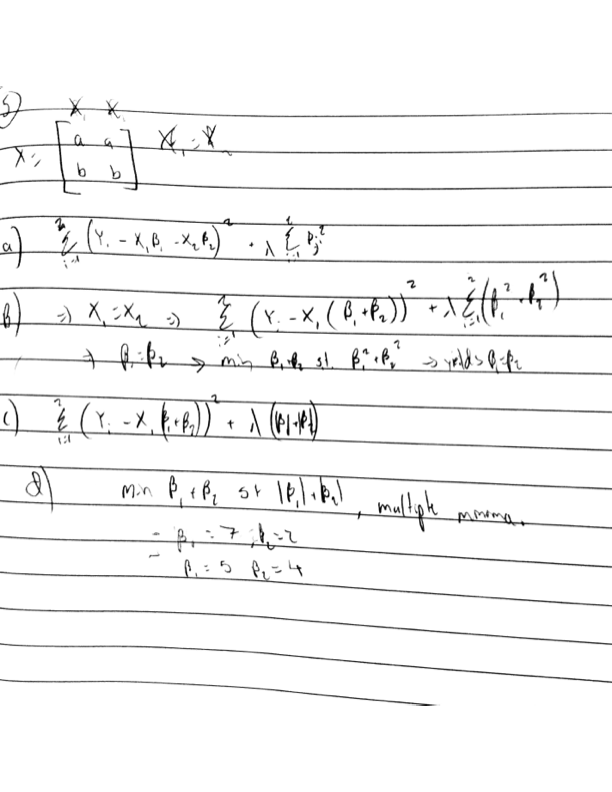 5)
X₁ X₂
X = [a a; b b] X₁ = X₂
a) Σ_{i=1}^{2} (Y_i - X₁β₁ - X₂β₂)² + λ Σ_{i=1}^{2} β_j²
B) ⇒ X₁ = X₂ ⇒ Σ_{i=1}^{2} (Y_i - X₁(β₁+β₂))² + λ Σ_{i=1}^{2} (β₁² + β₂²)
⇒ β₁ = β₂ → min β₁+β₂ st. β₁² + β₂² → yields β₁ = β₂
c) Σ_{i=1}^{2} (Y_i - X₁(β₁+β₂))² + λ (|β₁|+|β₂|)
d) min β₁ + β₂ st |β₁| + |β₂|, multiple minima.
= β₁ = 7, β₂ = 2
β₁ = 5 β₂ = 4